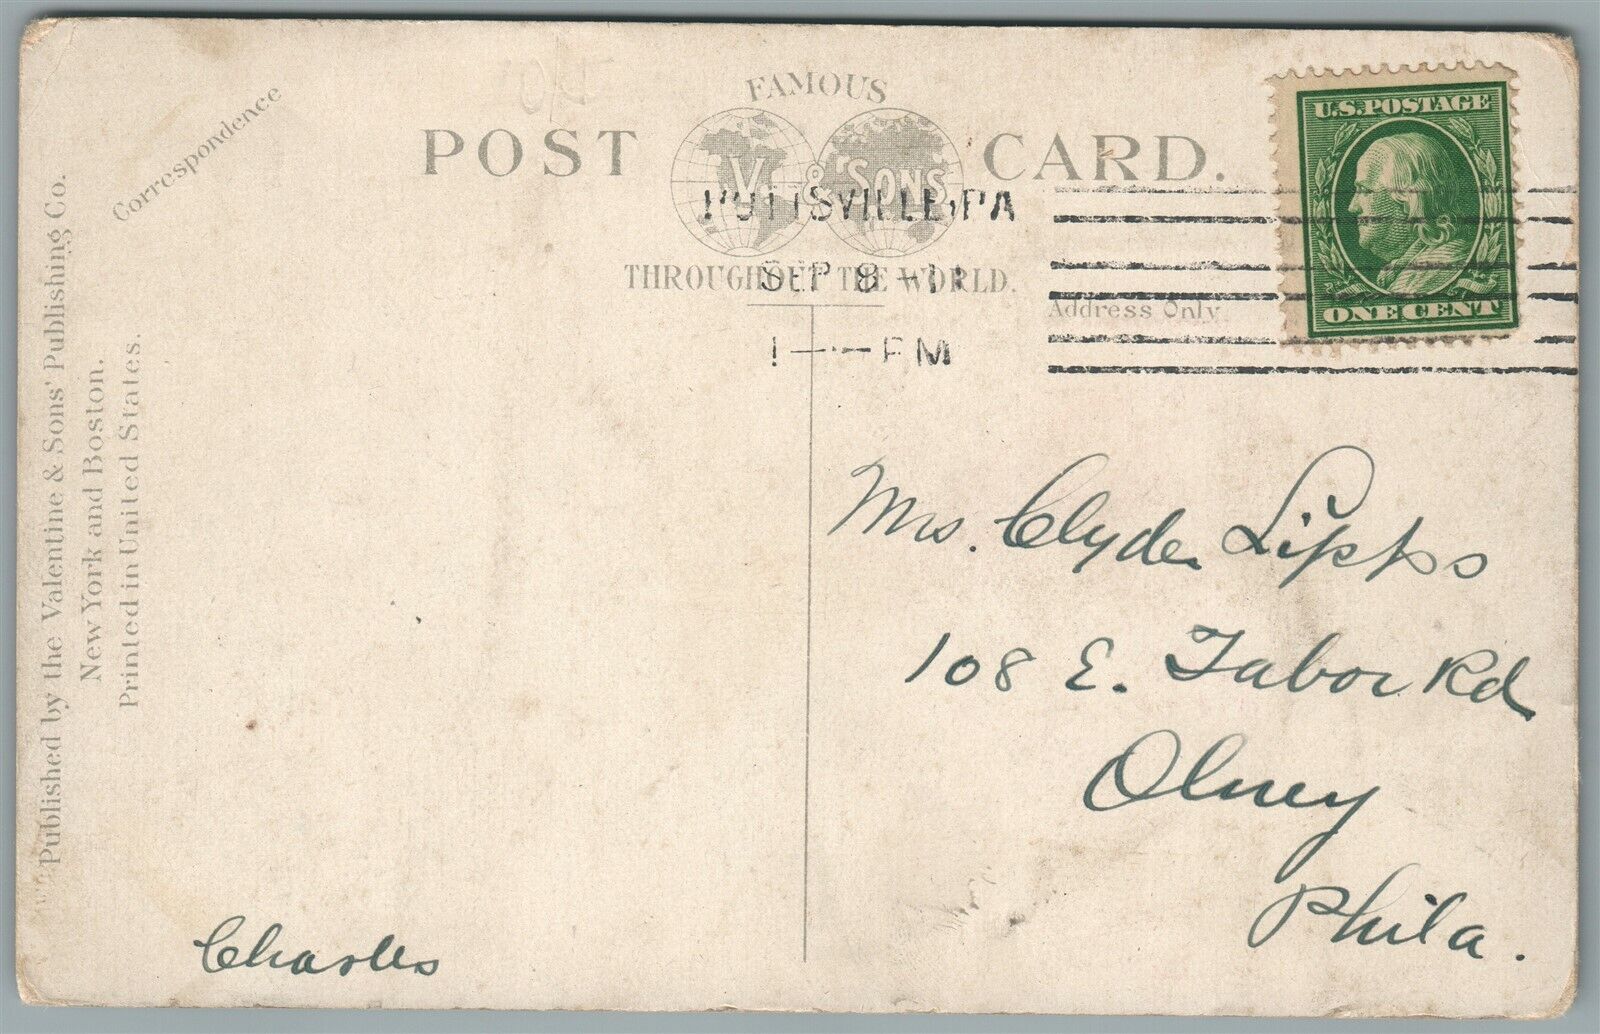 FAMOUS
POST CARD.
V. & SONS
THROUGHOUT THE WORLD.
Correspondence
Address Only.
Published by the Valentine & Sons' Publishing Co.
New York and Boston.
Printed in United States.
U.S. POSTAGE
ONE CENT
POTTSVILLE, PA
SEP 8 - 11
1 — PM
Mrs. Clyde Lipps
108 E. Tabor Rd
Olney
Phila.
Charles